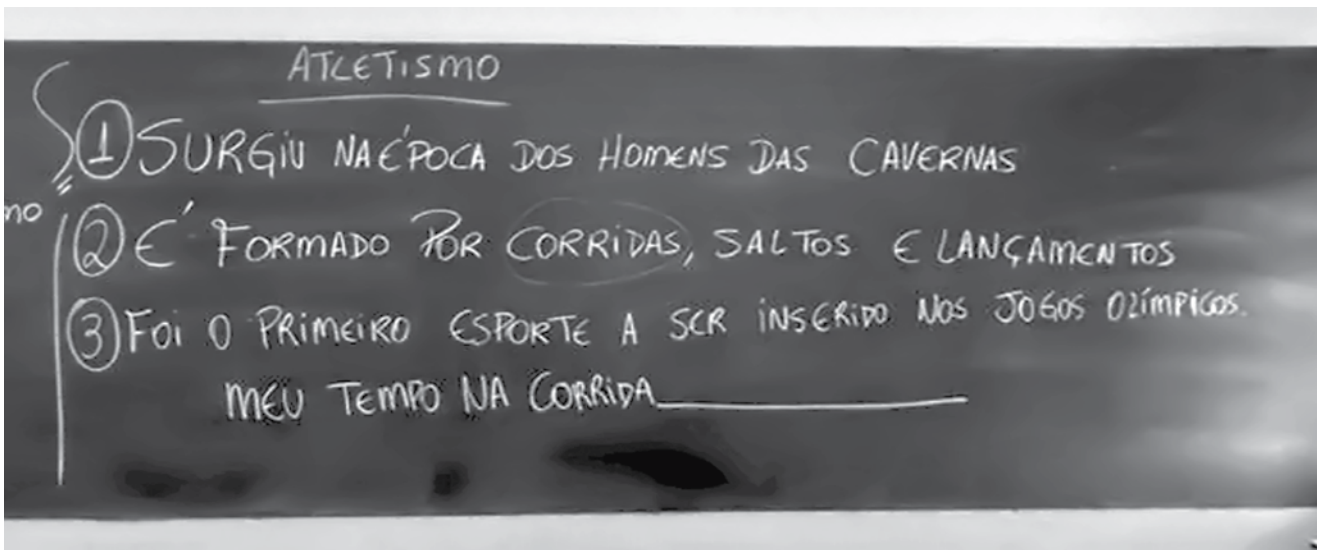 ATLETISMO
① SURGIU NA ÉPOCA DOS HOMENS DAS CAVERNAS
no
② É FORMADO POR CORRIDAS, SALTOS E LANÇAMENTOS
③ FOI O PRIMEIRO ESPORTE A SER INSERIDO NOS JOGOS OLÍMPICOS.
MEU TEMPO NA CORRIDA__________